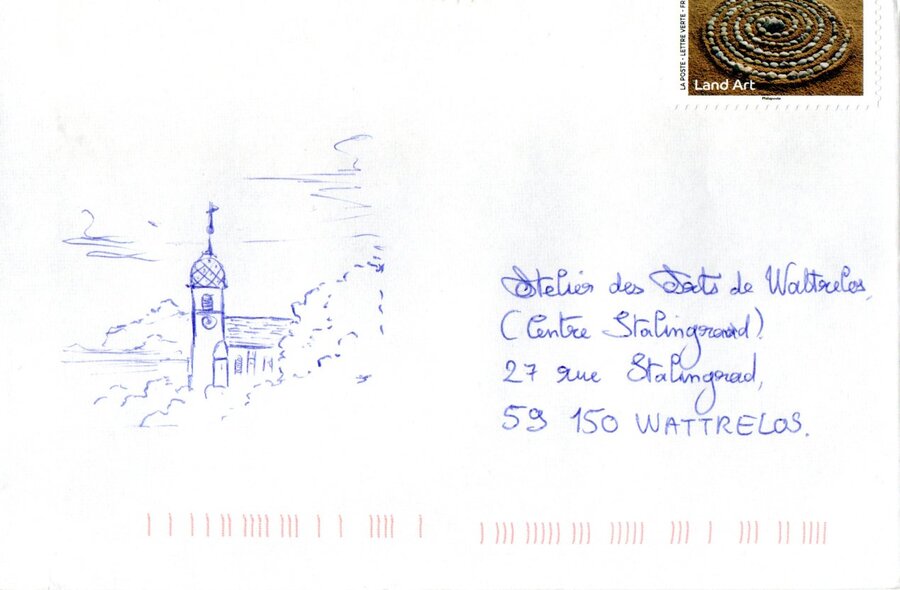 LA POSTE - LETTRE VERTE - FR
Land Art
Philaposte
Atelier des Arts de Wattrelos,
(Centre Stalingrad)
27 rue Stalingrad,
59 150 WATTRELOS.